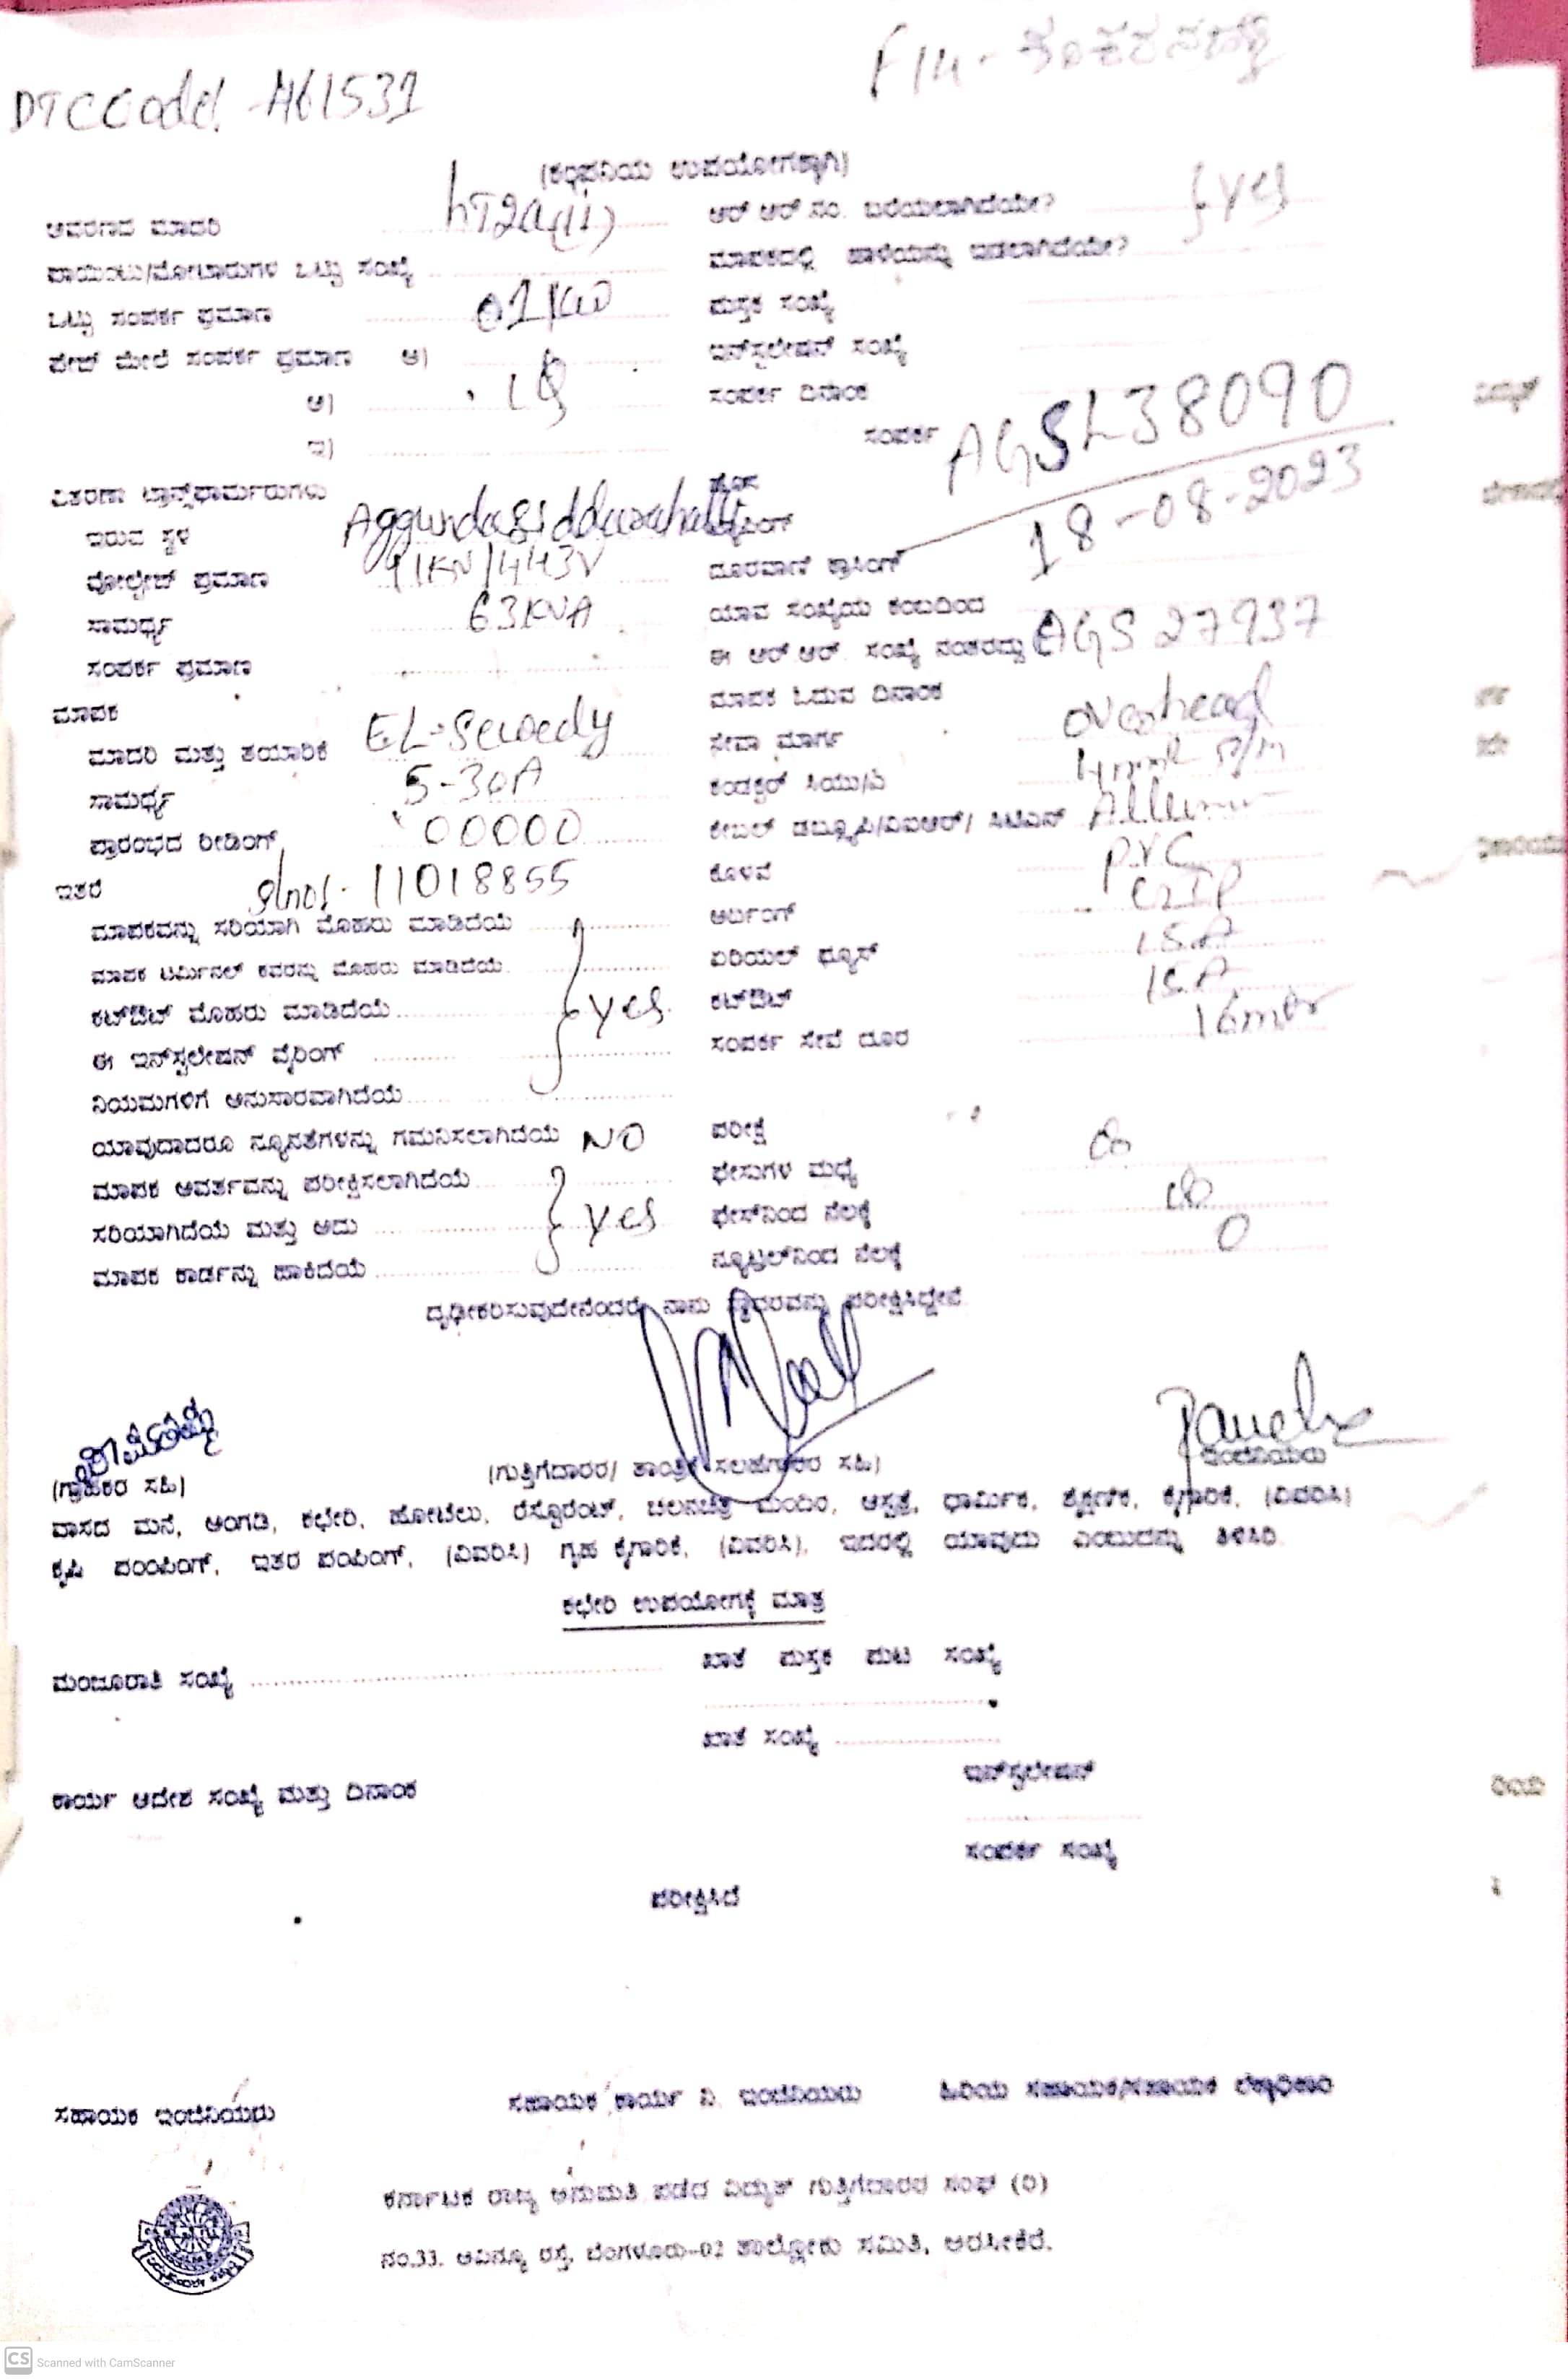 DTCCode - AG1531
F14 -
(ಕಂಪನಿಯ ಉಪಯೋಗಕ್ಕಾಗಿ)
ಆವರಣದ ಮಾದರಿ LT2a(ii)
ಪಾಯಿಂಟು/ಮೋಟಾರುಗಳ ಒಟ್ಟು ಸಂಖ್ಯೆ
ಒಟ್ಟು ಸಂಪರ್ಕ ಪ್ರಮಾಣ 01KW
ಪೇಜ್ ಮೇಲೆ ಸಂಪರ್ಕ ಪ್ರಮಾಣ ಅ)
ಆ)
ಇ)
ವಿತರಣಾ ಟ್ರಾನ್ಸ್‌ಫಾರ್ಮರುಗಳು
ಇರುವ ಸ್ಥಳ Aggundasiddarahalli
ವೋಲ್ಟೇಜ್ ಪ್ರಮಾಣ 11KV/443V
ಸಾಮರ್ಥ್ಯ 63KVA
ಸಂಪರ್ಕ ಪ್ರಮಾಣ
ಮಾಪಕ
ಮಾದರಿ ಮತ್ತು ತಯಾರಿಕೆ EL-Sewedy
ಸಾಮರ್ಥ್ಯ 5-30A
ಪ್ರಾರಂಭದ ರೀಡಿಂಗ್ 00000
ಇತರೆ slno:- 11018855
ಮಾಪಕವನ್ನು ಸರಿಯಾಗಿ ಮೊಹರು ಮಾಡಿದೆಯೆ
ಮಾಪಕ ಟರ್ಮಿನಲ್ ಕವರನ್ನು ಮೊಹರು ಮಾಡಿದೆಯೆ
ಕಟ್‌ಔಟ್ ಮೊಹರು ಮಾಡಿದೆಯೆ yes
ಈ ಇನ್‌ಸ್ಟಲೇಷನ್ ವೈರಿಂಗ್
ನಿಯಮಗಳಿಗೆ ಅನುಸಾರವಾಗಿದೆಯೆ
ಯಾವುದಾದರೂ ನ್ಯೂನತೆಗಳನ್ನು ಗಮನಿಸಲಾಗಿದೆಯೆ NO
ಮಾಪಕ ಆವರ್ತವನ್ನು ಪರೀಕ್ಷಿಸಲಾಗಿದೆಯೆ
ಸರಿಯಾಗಿದೆಯೆ ಮತ್ತು ಅದು yes
ಮಾಪಕ ಕಾರ್ಡನ್ನು ಹಾಕಿದೆಯೆ
ಆರ್.ಆರ್.ನಂ. ಬರೆಯಲಾಗಿದೆಯೇ? yes
ಮಾಪಕದಲ್ಲಿ ಹಾಳೆಯನ್ನು ಇಡಲಾಗಿದೆಯೇ?
ಪುಸ್ತಕ ಸಂಖ್ಯೆ
ಇನ್‌ಸ್ಟಲೇಷನ್ ಸಂಖ್ಯೆ
ಸಂಪರ್ಕ ದಿನಾಂಕ
ಸಂಪರ್ಕ AGSL38090
18-08-2023
ದೂರವಾಣಿ ಕ್ರಾಸಿಂಗ್
ಯಾವ ಸಂಖ್ಯೆಯ ಕಂಬದಿಂದ
ಈ ಆರ್.ಆರ್. ಸಂಖ್ಯೆ ನಂತರದ್ದು AGS 27937
ಮಾಪಕ ಓದುವ ದಿನಾಂಕ
ಸೇವಾ ಮಾರ್ಗ overhead
ಕಂಡಕ್ಟರ್ ಸಿಯು/ಎ
ಕೇಬಲ್ ಡಬ್ಲ್ಯೂಪಿ/ವಿಐಆರ್/ ಸಿಟಿಎಸ್
ಕೊಳವೆ PVC
ಅರ್ಥಿಂಗ್
ಏರಿಯಲ್ ಫ್ಯೂಸ್ 15A
ಕಟ್‌ಔಟ್ 15A
ಸಂಪರ್ಕ ಸೇವೆ ದೂರ 16mtr
ಪರೀಕ್ಷೆ
ಫೇಸುಗಳ ಮಧ್ಯೆ
ಫೇಸ್‌ನಿಂದ ನೆಲಕ್ಕೆ
ನ್ಯೂಟ್ರಲ್‌ನಿಂದ ನೆಲಕ್ಕೆ 0
ದೃಢೀಕರಿಸುವುದೇನೆಂದರೆ ನಾನು ಸ್ಥಾವರವನ್ನು ಪರೀಕ್ಷಿಸಿದ್ದೇನೆ
(ಗ್ರಾಹಕರ ಸಹಿ) (ಗುತ್ತಿಗೆದಾರರ/ ತಾಂತ್ರಿಕ ಸಲಹೆಗಾರರ ಸಹಿ) ಇಂಜಿನಿಯರು
ವಾಸದ ಮನೆ, ಅಂಗಡಿ, ಕಛೇರಿ, ಹೋಟೆಲು, ರೆಸ್ಟೋರೆಂಟ್, ಚಲನಚಿತ್ರ ಮಂದಿರ, ಆಸ್ಪತ್ರೆ, ಧಾರ್ಮಿಕ, ಶೈಕ್ಷಣಿಕ, ಕೈಗಾರಿಕೆ, (ವಿವರಿಸಿ)
ಕೃಷಿ ಪಂಪಿಂಗ್, ಇತರ ಪಂಪಿಂಗ್, (ವಿವರಿಸಿ) ಗೃಹ ಕೈಗಾರಿಕೆ, (ವಿವರಿಸಿ), ಇದರಲ್ಲಿ ಯಾವುದು ಎಂಬುದನ್ನು ತಿಳಿಸಿರಿ.
ಕಛೇರಿ ಉಪಯೋಗಕ್ಕೆ ಮಾತ್ರ
ಮಂಜೂರಾತಿ ಸಂಖ್ಯೆ
ಖಾತೆ ಪುಸ್ತಕ ಪುಟ ಸಂಖ್ಯೆ
ಖಾತೆ ಸಂಖ್ಯೆ
ಇನ್‌ಸ್ಟಲೇಷನ್
ಕಾರ್ಯ ಆದೇಶ ಸಂಖ್ಯೆ ಮತ್ತು ದಿನಾಂಕ
ಸಂಪರ್ಕ ಸಂಖ್ಯೆ
ಪರೀಕ್ಷಿಸಿದೆ
ಸಹಾಯಕ ಇಂಜಿನಿಯರು ಸಹಾಯಕ ಕಾರ್ಯ ನಿ. ಇಂಜಿನಿಯರು ಹಿರಿಯ ಸಹಾಯಕ/ಸಹಾಯಕ ಲೆಕ್ಕಾಧಿಕಾರಿ
ಕರ್ನಾಟಕ ರಾಜ್ಯ ಅನುಮತಿ ಪಡೆದ ವಿದ್ಯುತ್ ಗುತ್ತಿಗೆದಾರರ ಸಂಘ (ರಿ)
ನಂ.33. ಅವಿನ್ಯೂ ರಸ್ತೆ, ಬೆಂಗಳೂರು-02 ತಾಲ್ಲೋಕು ಸಮಿತಿ, ಅರಸೀಕೆರೆ.
CS Scanned with CamScanner